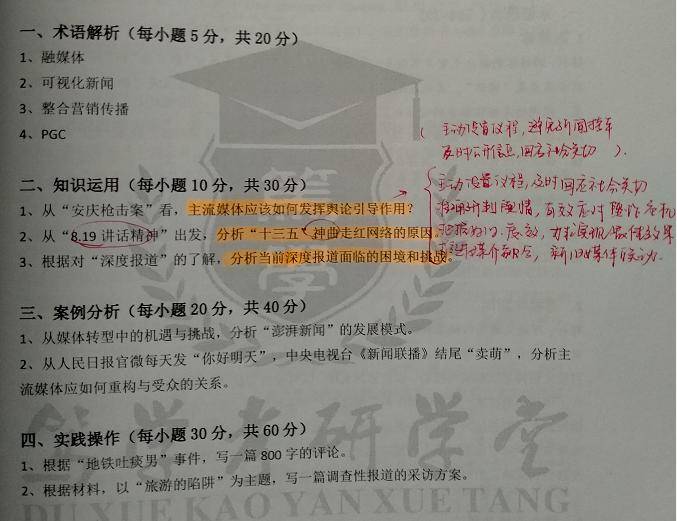 一、术语解析（每小题5分，共20分）
1、融媒体
2、可视化新闻
3、整合营销传播
4、PGC
（主动设置议程，避免新闻搭车
及时公开信息，回应社会关切）.
二、知识运用（每小题10分，共30分）
1、从“安庆枪击案”看，主流媒体应该如何发挥舆论引导作用？
2、从“8.19讲话精神”出发，分析“十三五”神曲走红网络的原因。
3、根据对“深度报道”的了解，分析当前深度报道面临的困境和挑战。
主动设置议程，及时回应社会关切
准确研判舆情，有效应对 危机
把握时、度、效，
推进媒介融合，新旧媒体联动.
三、案例分析（每小题20分，共40分）
1、从媒体转型中的机遇与挑战，分析“澎湃新闻”的发展模式。
2、从人民日报官微每天发“你好明天”，中央电视台《新闻联播》结尾“卖萌”，分析主
流媒体应如何重构与受众的关系。
四、实践操作（每小题30分，共60分）
1、根据“地铁吐痰男”事件，写一篇800字的评论。
2、根据材料，以“旅游的陷阱”为主题，写一篇调查性报道的采访方案。
笃学考研学堂
DU XUE KAO YAN XUE TANG